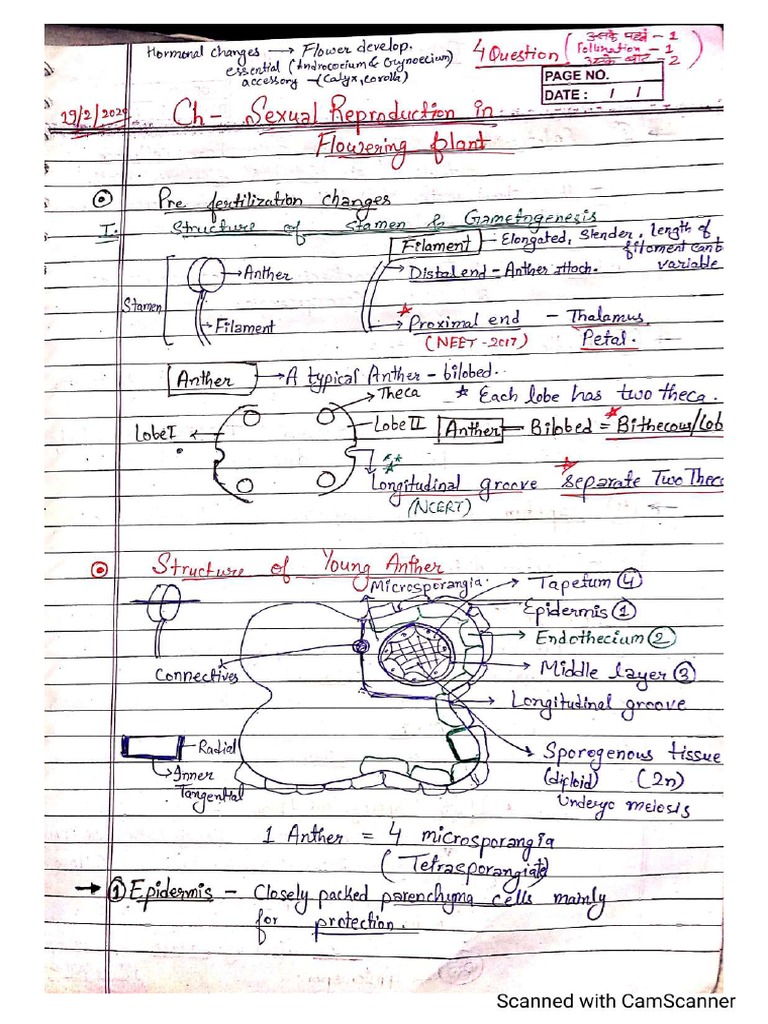 Hormonal changes → Flower develop.
essential (Androecium & Gynoecium)
accessory → (Calyx, corolla)
4 Question (उसके पहले - 1
Pollination - 1
उसके बाद - 2)
PAGE NO.
DATE : / /
19/2/2024
Ch- Sexual Reproduction in
Flowering plant
Pre fertilization changes
I. Structure of stamen & Gametogenesis
Filament - Elongated, Slender, length of
filament can't
variable
Anther
Distal end - Anther attach.
Stamen
Filament
Proximal end - Thalamus,
(NEET - 2017) Petal.
Anther → A typical Anther - bilobed.
Theca
* Each lobe has two theca.
Lobe I
Lobe II
Anther - Bilobed = Bithecous/Lob
Longitudinal groove separate Two Theca
(NCERT)
Structure of Young Anther
Microsporangia.
Tapetum ④
Epidermis ①
Endothecium ②
Connectives
Middle layer ③
Longitudinal groove
Radial
Inner
Tangential
Sporogenous tissue
(diploid) (2n)
Undergo meiosis
1 Anther = 4 microsporangia
(Tetraeporangiate)
→ ① Epidermis - Closely packed parenchyma cells mainly
for protection.
Scanned with CamScanner